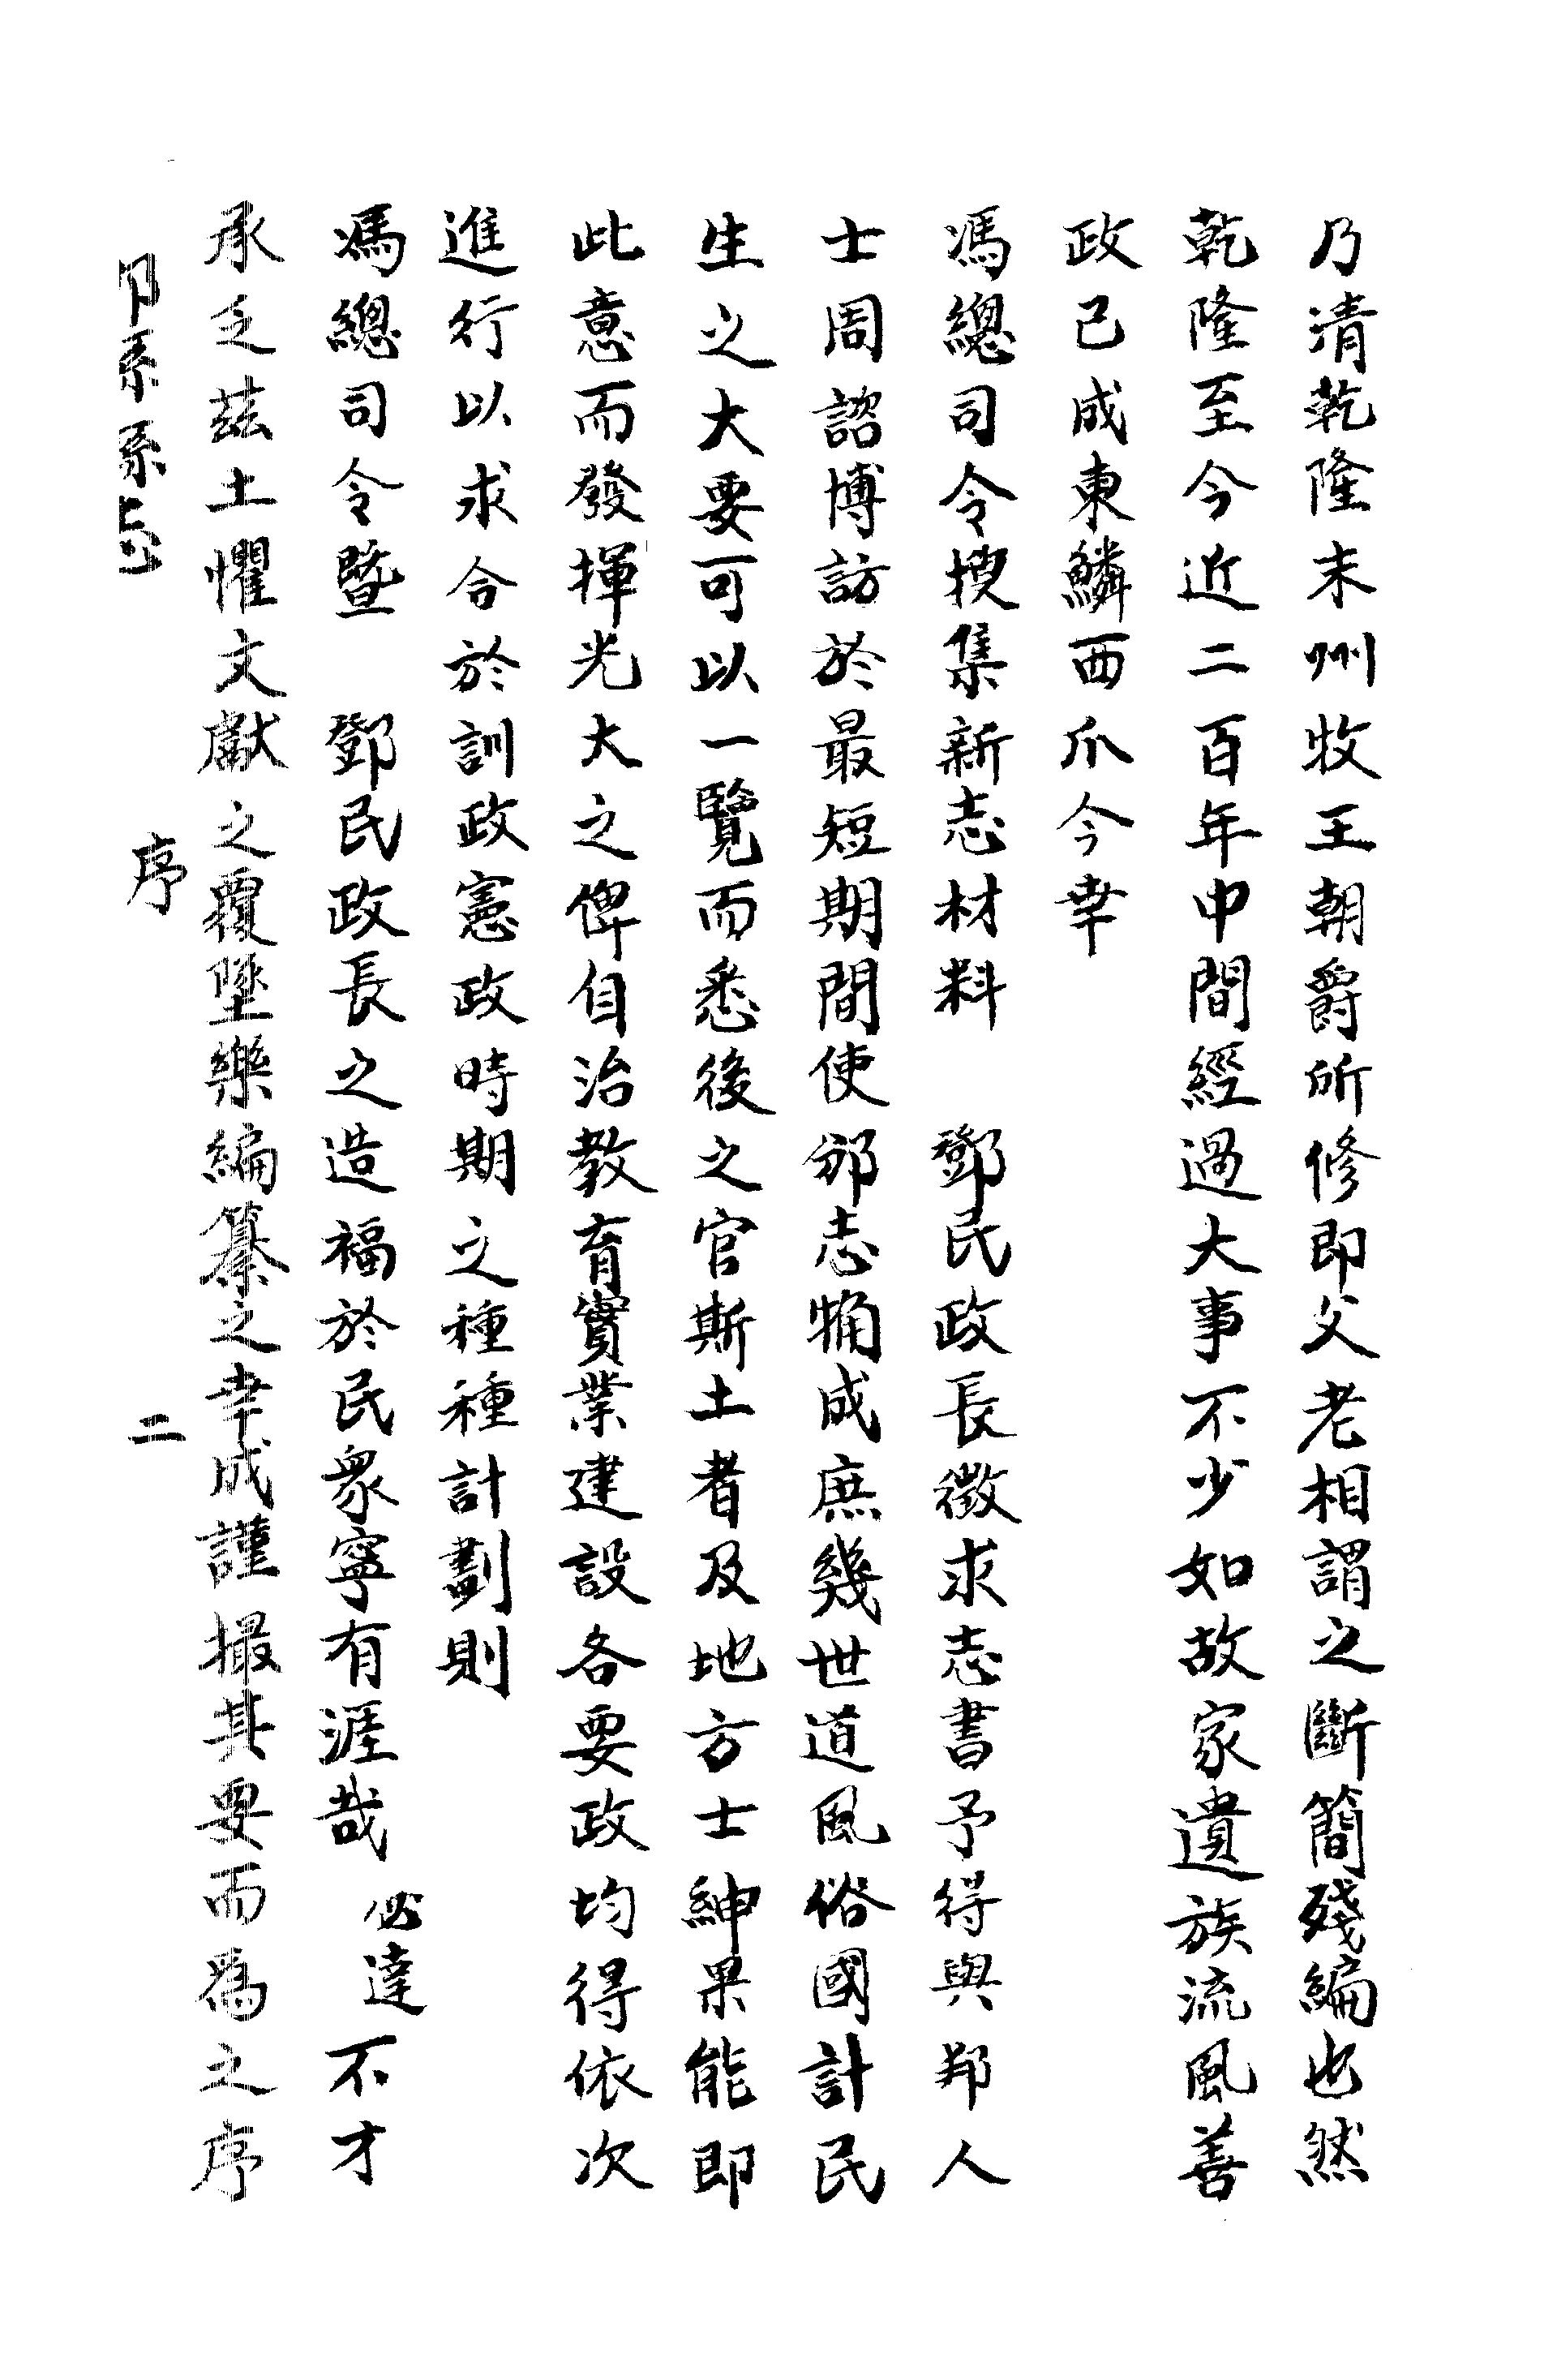 乃清乾隆末州牧王朝爵所修即父老相謂之斷簡殘編也然
乾隆至今近二百年中間經過大事不少如故家遺族流風善
政已成東鱗西爪今幸
馮總司令搜集新志材料　鄧民政長徵求志書予得與邦人
士周諮博訪於最短期間使邠志犕成庶幾世道風俗國計民
生之大要可以一覽而悉後之官斯土者及地方士紳果能即
此意而發揮光大之俾自治教育實業建設各要政均得依次
進行以求合於訓政憲政時期之種種計劃則
馮總司令暨　鄧民政長之造福於民衆寧有涯哉　必達不才
承乏茲土懼文獻之覆墜樂編纂之幸成謹撮其要而為之序
序　二